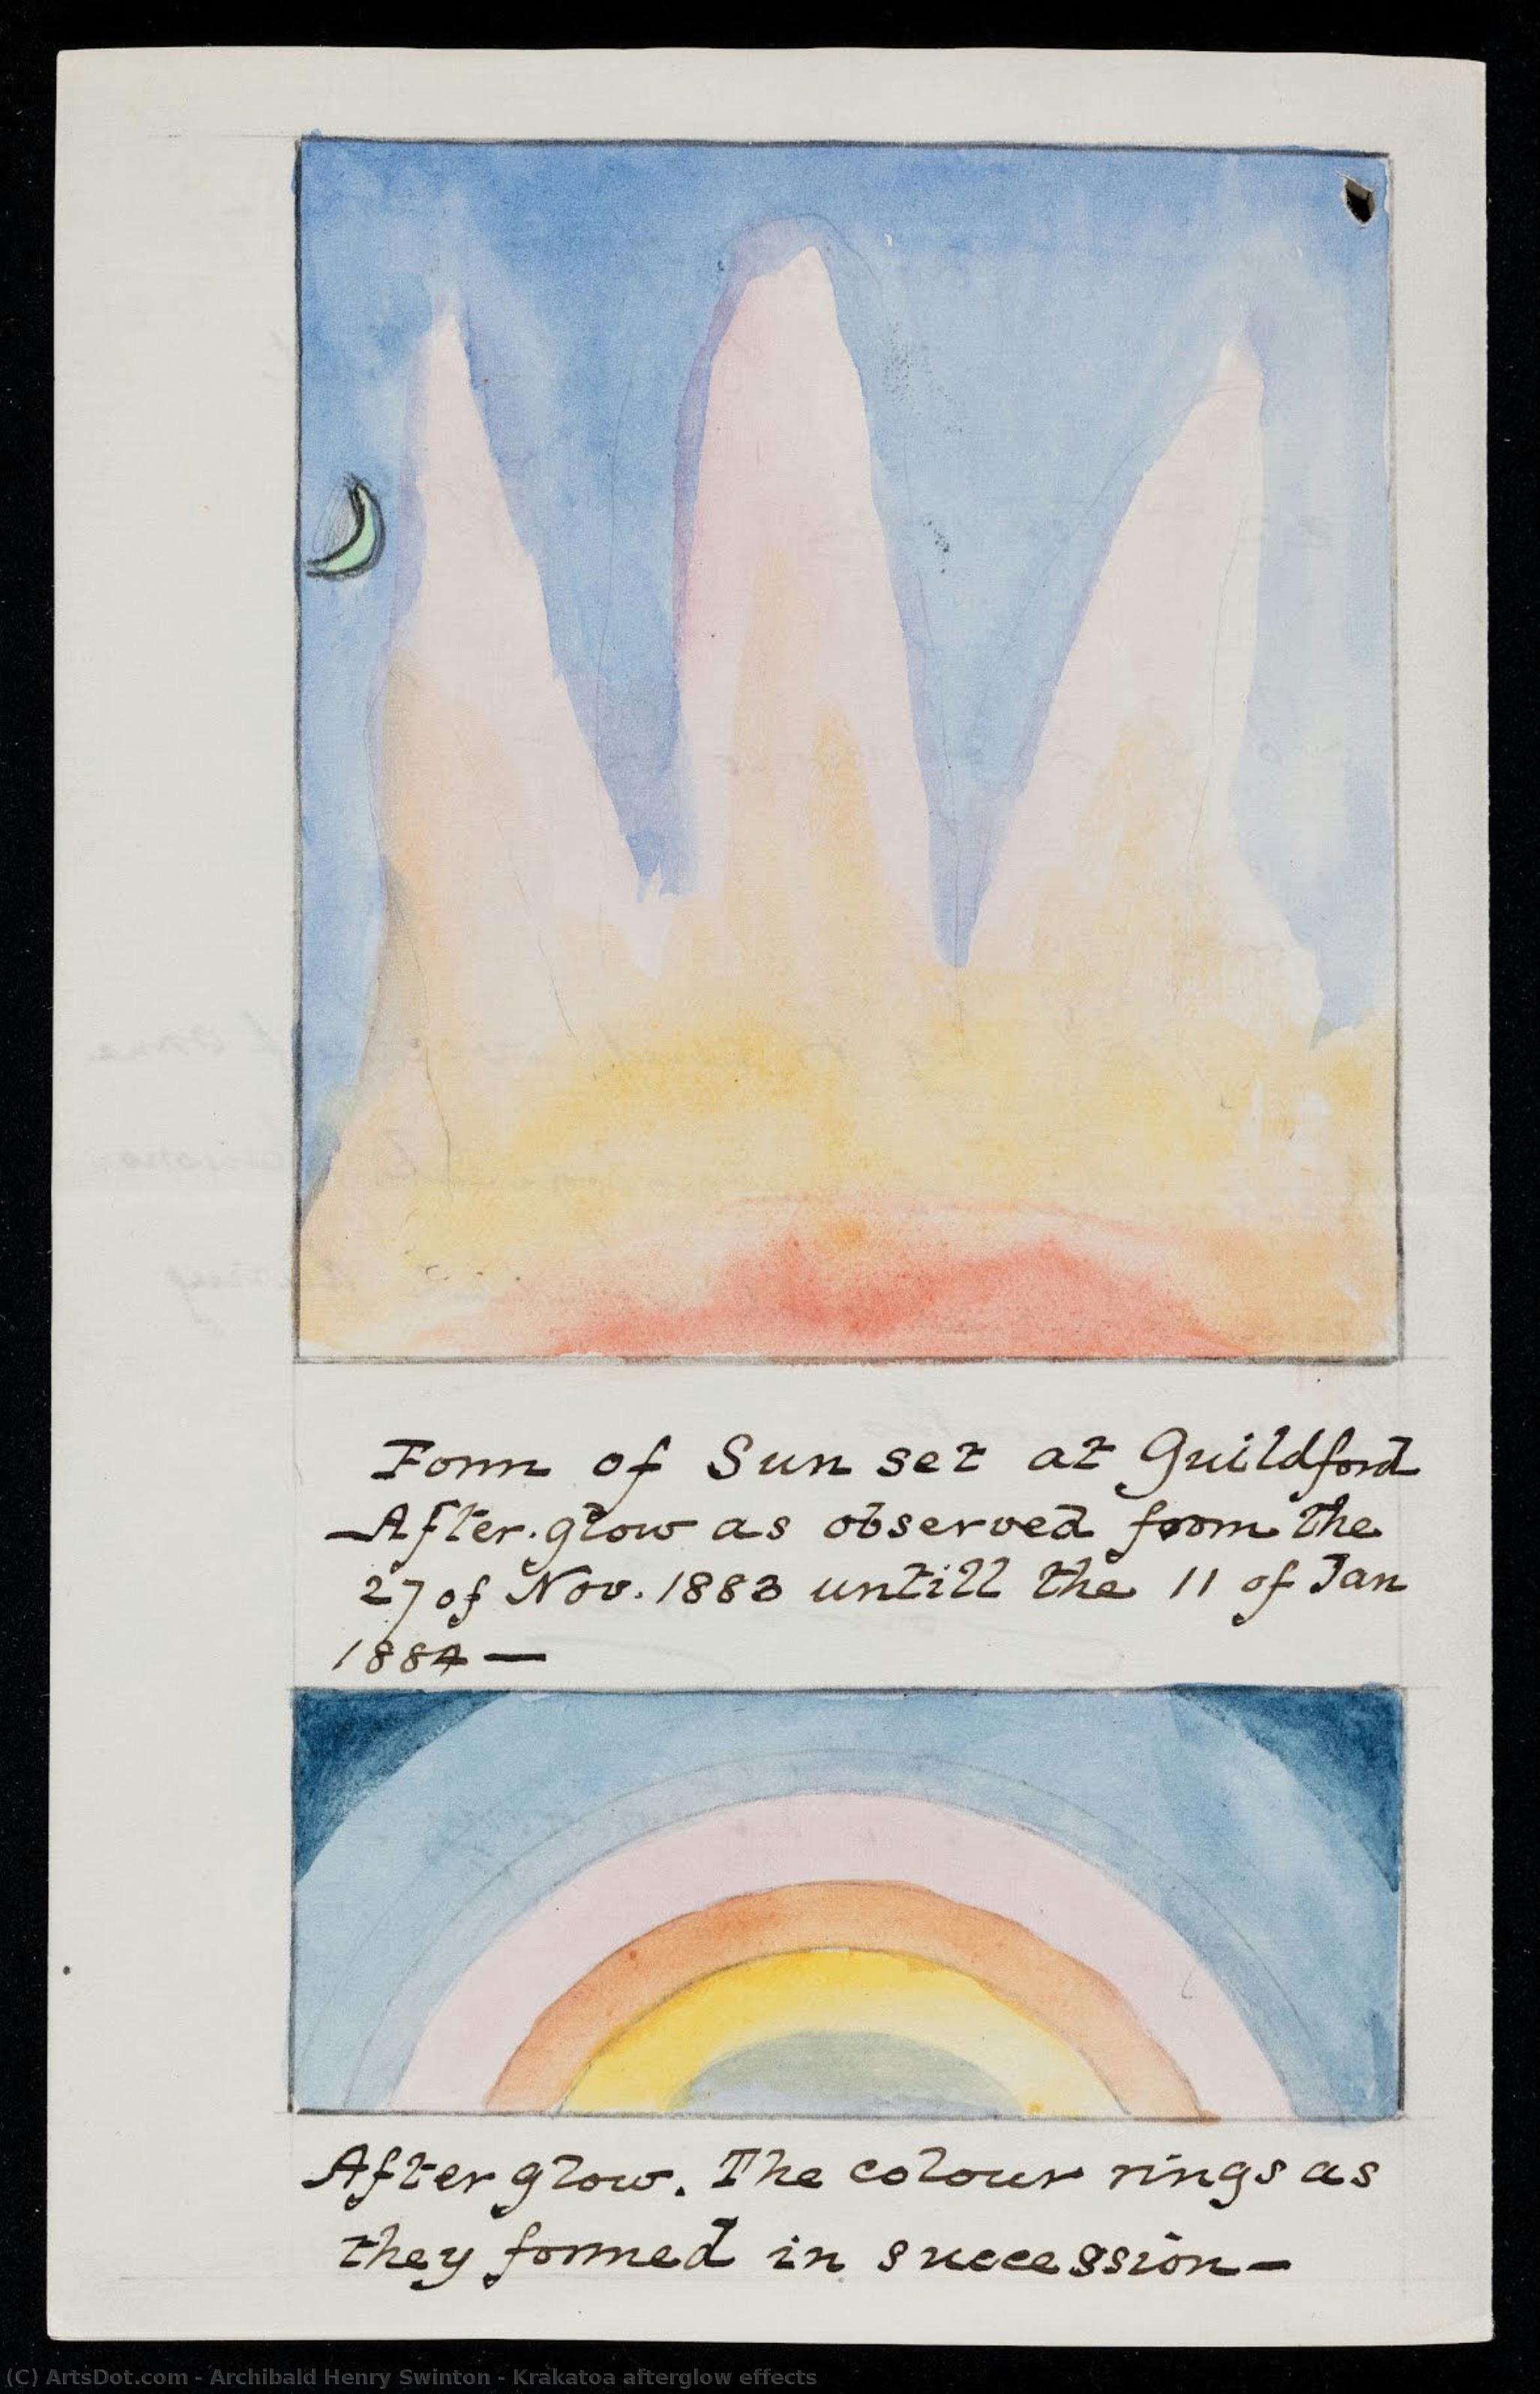 Form of Sun set at Guildford
After.glow as observed from the
27 of Nov. 1883 untill the 11 of Jan
1884 —
After glow. The colour rings as
they formed in succession —
(C) ArtsDot.com - Archibald Henry Swinton - Krakatoa afterglow effects